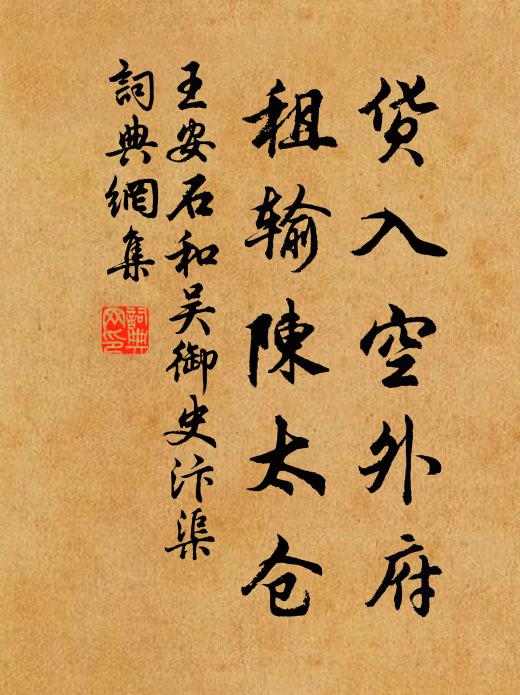 货入空外府
租输陳太仓
王安石和吴御史汴渠
詞典網集
詞典網印